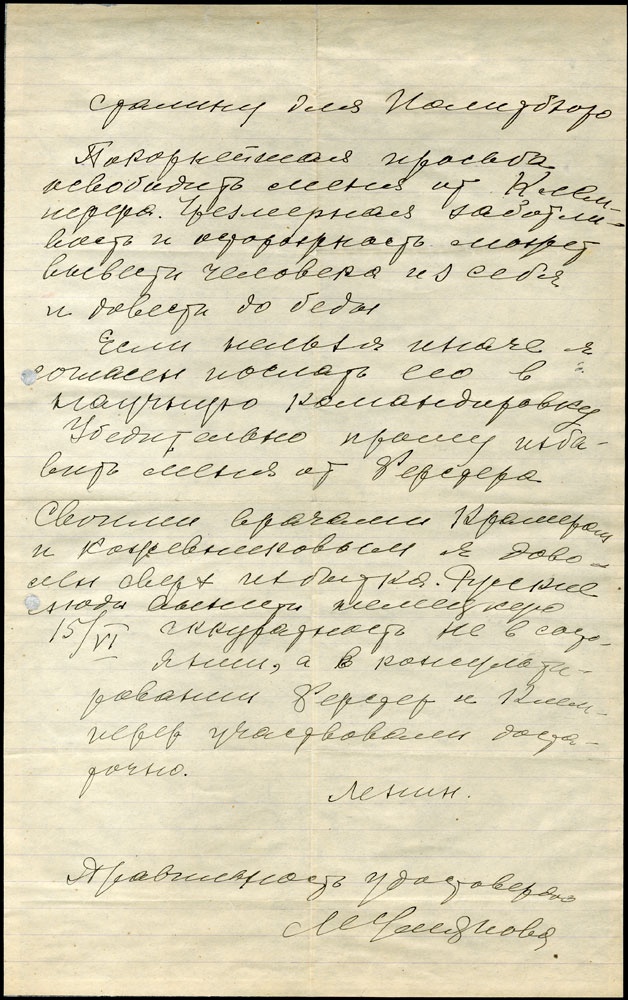 Сталину для Политбюро
Покорнейшая просьба
освободить меня от Клем-
перера. Чрезмерная заботли-
вость и осторожность может
вывести человека из себя
и довести до беды
Если нельзя иначе я
согласен послать его в
научную командировку
Убедительно прошу изба-
вить меня от Ферстера
Своими врачами Крамером
и Кожевниковым я дово-
лен сверх избытка. Русские
люди вынести немецкую
15/VI аккуратность не в состо-
янии, а в консульти-
ровании Ферстер и Клем-
перер участвовали доста-
точно.
Ленин.
Правильность удостоверяю
М Ульянова